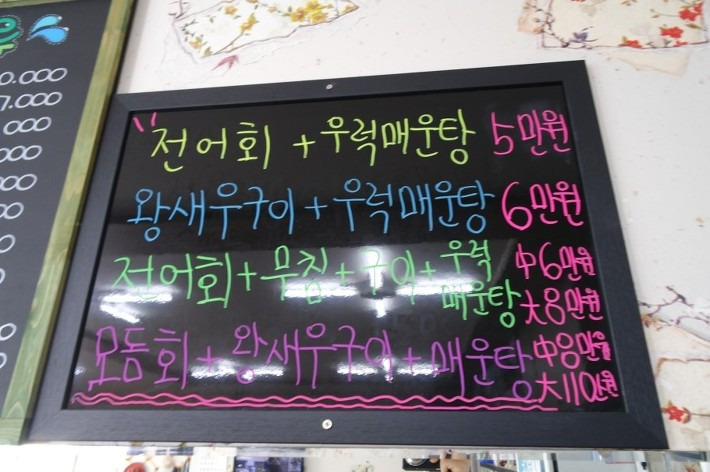 0.000
7.000
000
000
전어회 + 우럭매운탕 5만원
왕새우구이 + 우럭매운탕 6만원
전어회 + 무침 + 구이 + 우럭매운탕 中6만원 大8만원
모듬회 + 왕새우구이 + 매운탕 中8만원